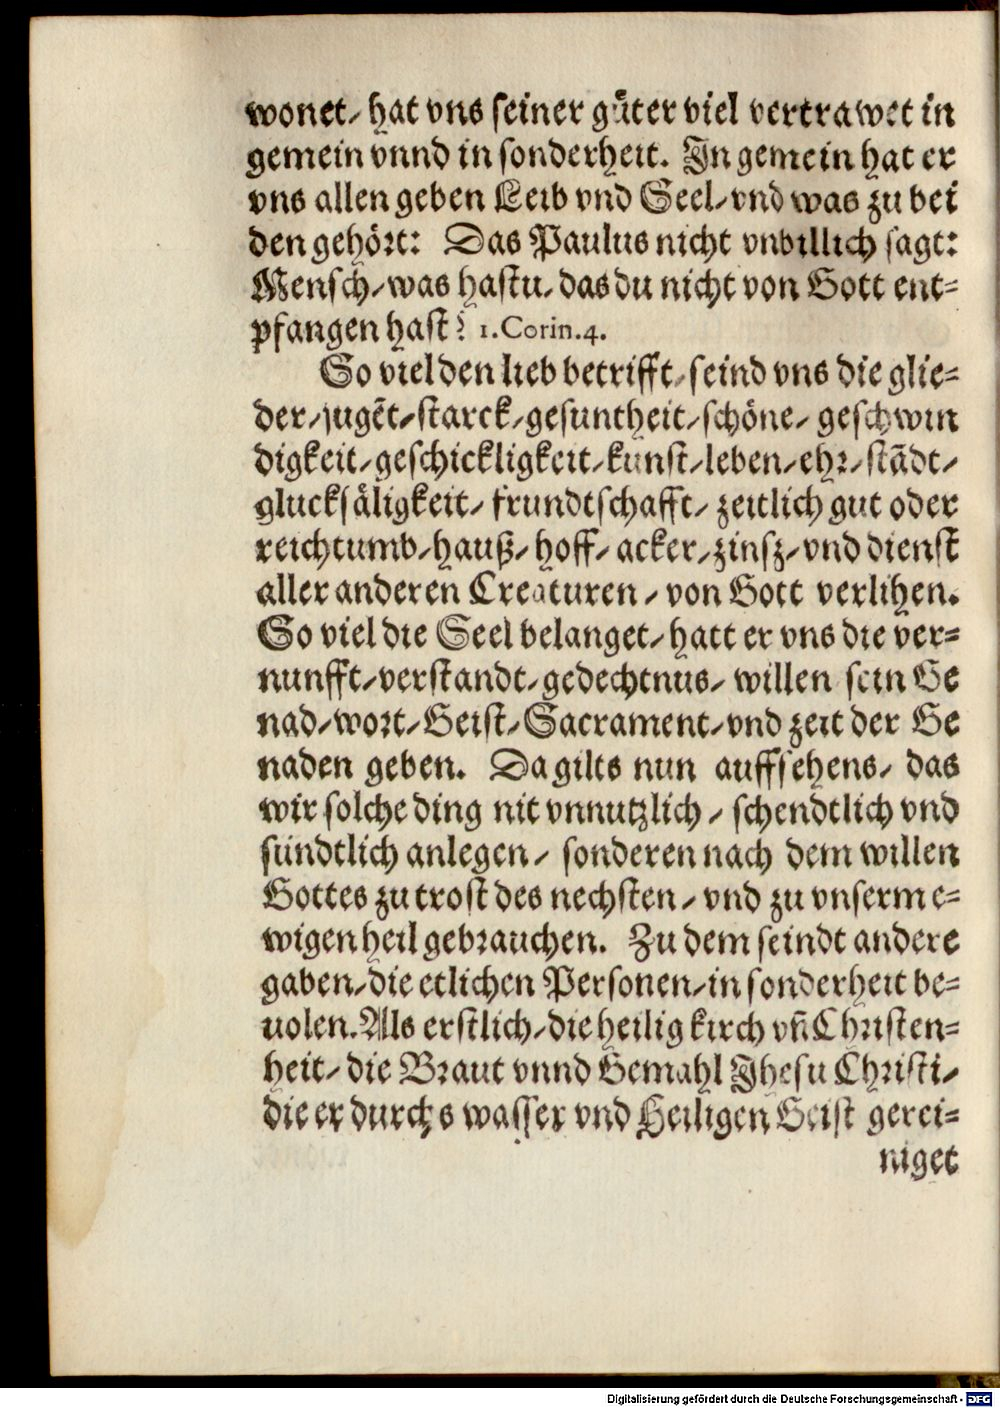 wonet/ hat vns seiner gůter viel vertrawet in
gemein vnnd in sonderheit. In gemein hat er
vns allen geben Leib vnd Seel/ vnd was zu bei
den gehört: Das Paulus nicht vnbillich sagt:
Mensch/ was hastu/ das du nicht von Gott ent-
pfangen hast? 1.Corin.4.
So viel den lieb betrifft/ seind vns die glie-
der/ jugẽt/ starck/ gesuntheit/ schöne/ geschwin
digkeit/ geschickligkeit/ kunst/ leben/ ehr/ stãdt/
glucksäligkeit/ frundtschafft/ zeitlich gut oder
reichtumb/ hauß/ hoff/ acker/ zinsz/ vnd dienst
aller anderen Creaturen/ von Gott verlihen.
So viel die Seel belanget/ hatt er vns die ver-
nunfft/ verstandt/ gedechtnus/ willen sein Ge
nad/ wort/ Geist/ Sacrament/ vnd zeit der Ge
naden geben. Da gilts nun auffsehens/ das
wir solche ding nit vnnutzlich/ schendtlich vnd
sündtlich anlegen/ sonderen nach dem willen
Gottes zu trost des nechsten/ vnd zu vnserm e-
wigen heil gebrauchen. Zu dem seindt andere
gaben/ die etlichen Personen/ in sonderheit be-
uolen. Als erstlich/ die heilig kirch vñ Christen-
heit/ die Braut vnnd Gemahl Jhesu Christi/
die er durchs wasser vnd Heiligen Geist gerei-
niget
Digitalisierung gefördert durch die Deutsche Forschungsgemeinschaft - DFG